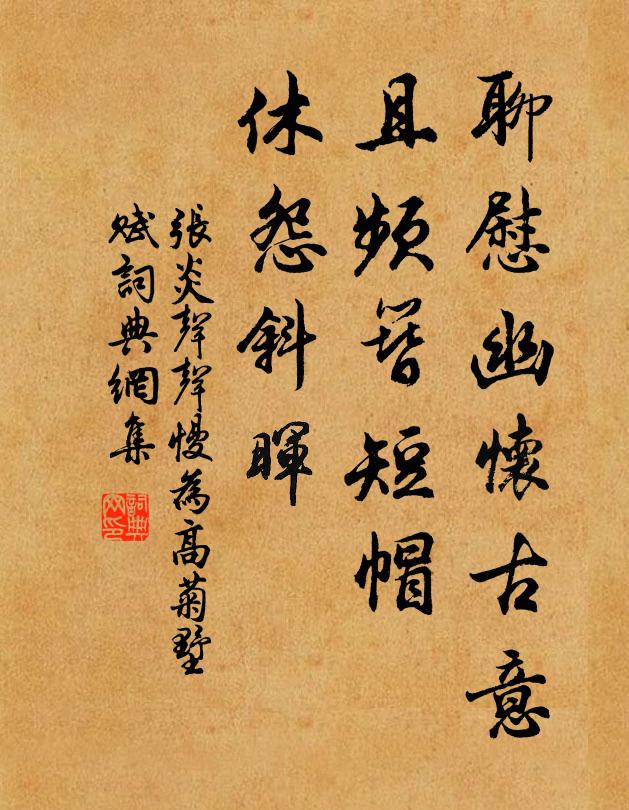 聊慰幽懷古意
且頻簪短帽
休怨斜暉
張炎聲聲慢為高菊墅
賦詞典網集
詞典網印